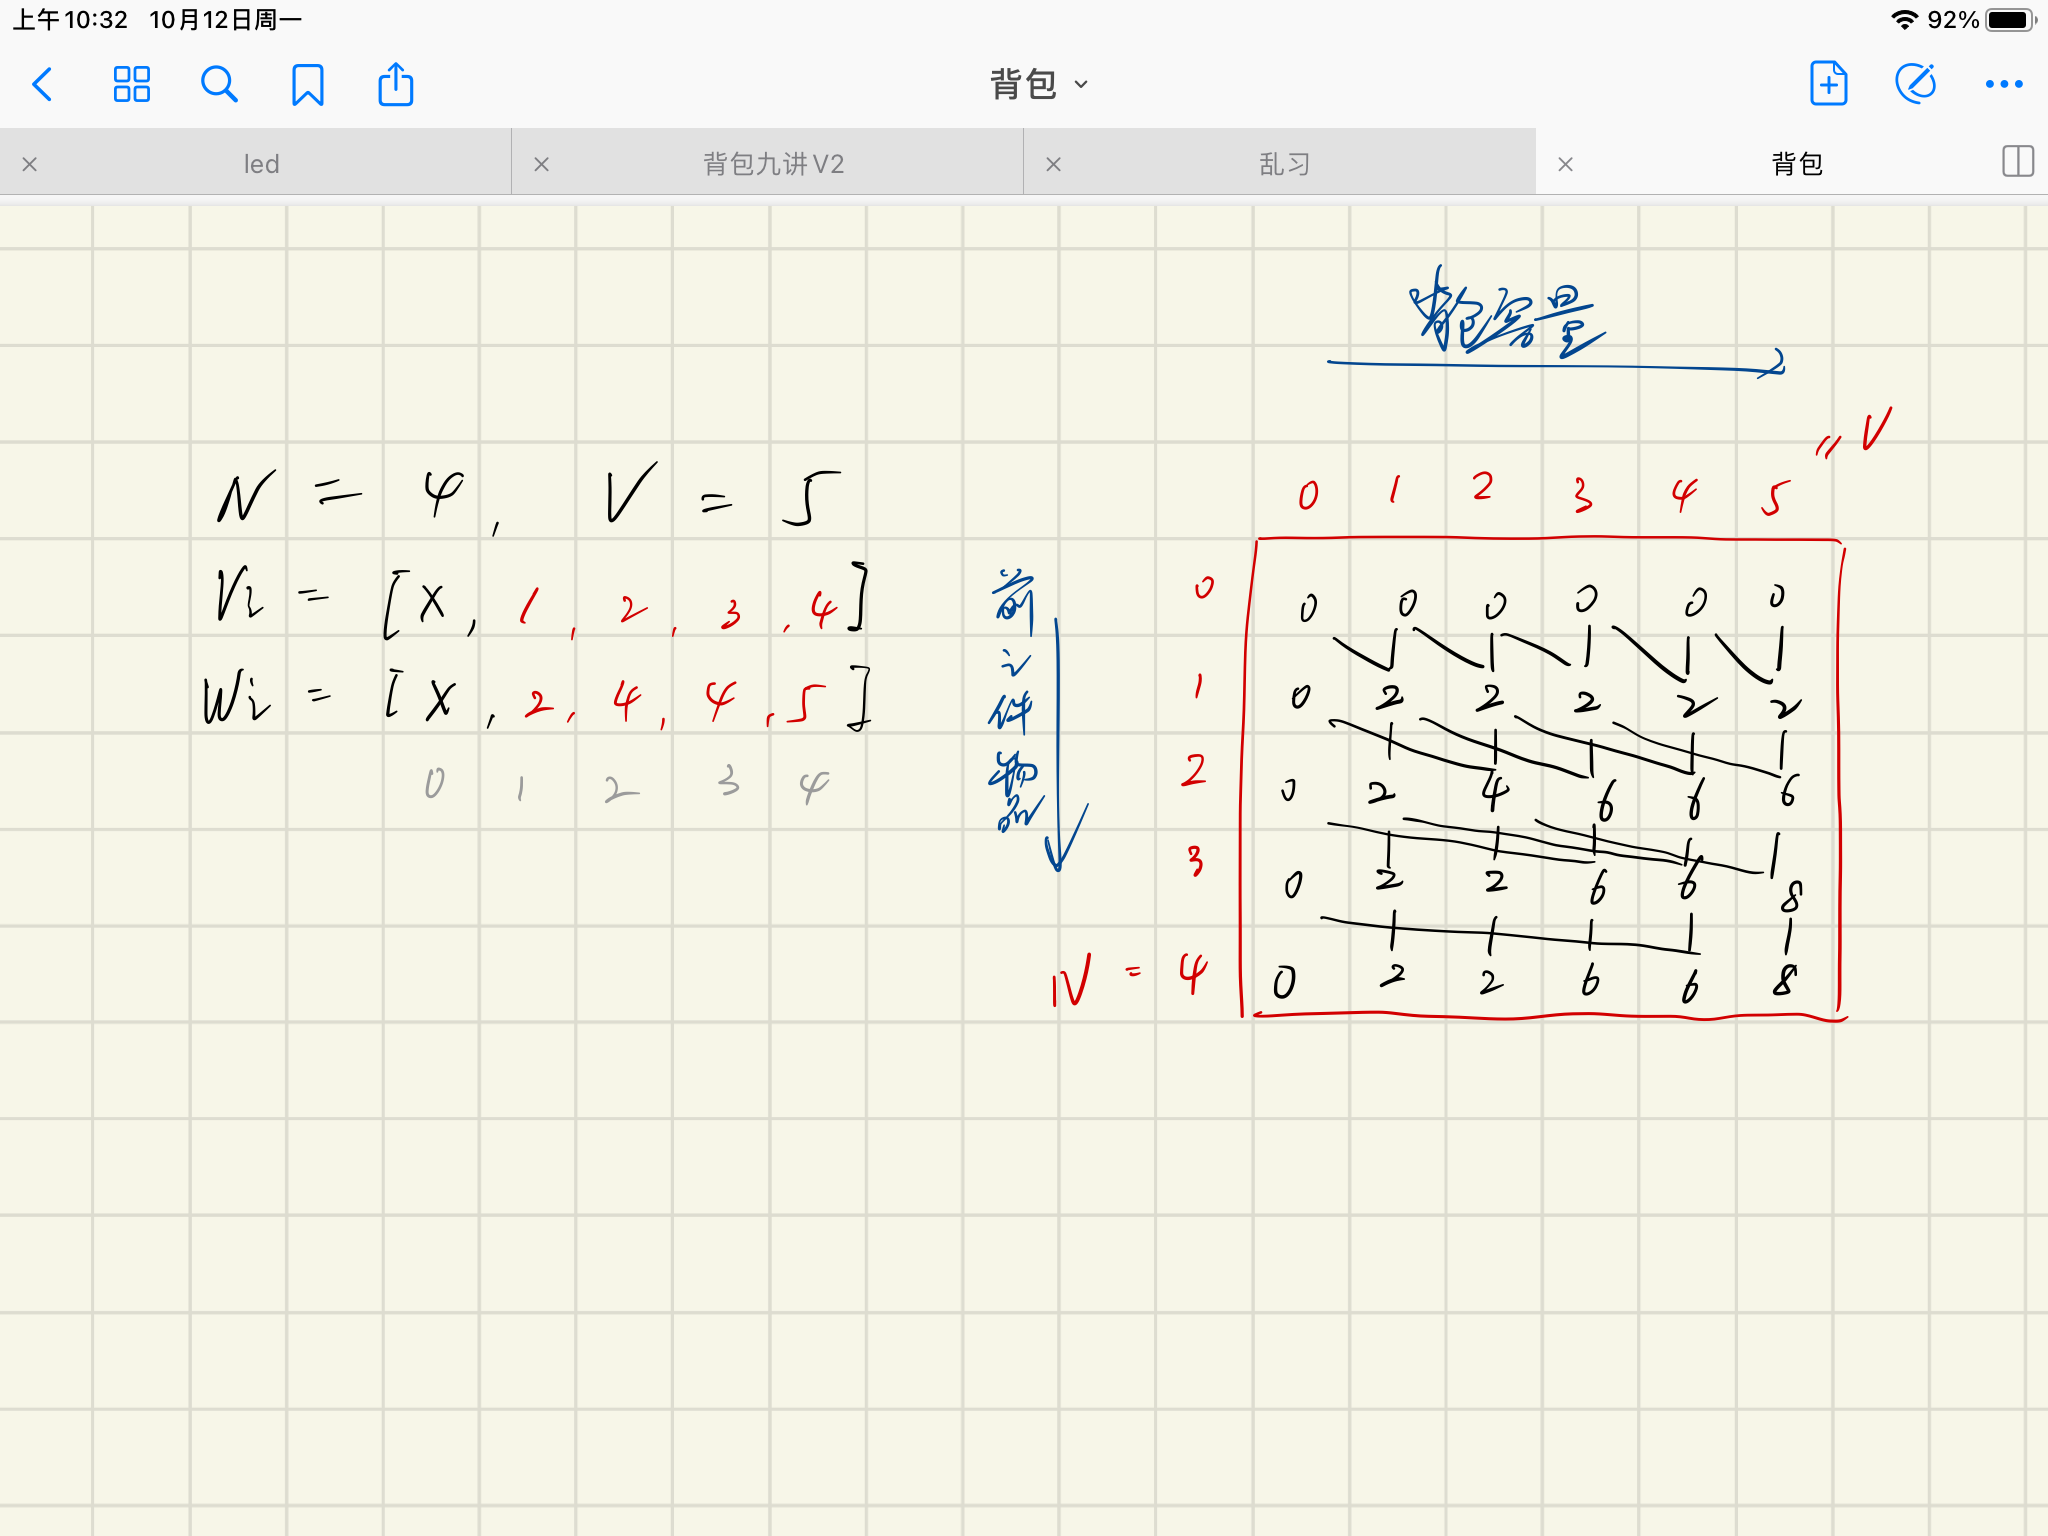 上午10:32 10月12日周一 92%
背包
led 背包九讲V2 乱习 背包
背包容量
N = 4, V = 5
Vi = [X, 1, 2, 3, 4]
Wi = [X, 2, 4, 4, 5]
0 1 2 3 4
前i件物品
0 1 2 3 4 5 = V
0 0 0 0 0 0 0
1 0 2 2 2 2 2
2 0 2 4 6 6 6
3 0 2 2 6 6 8
N = 4 0 2 2 6 6 8